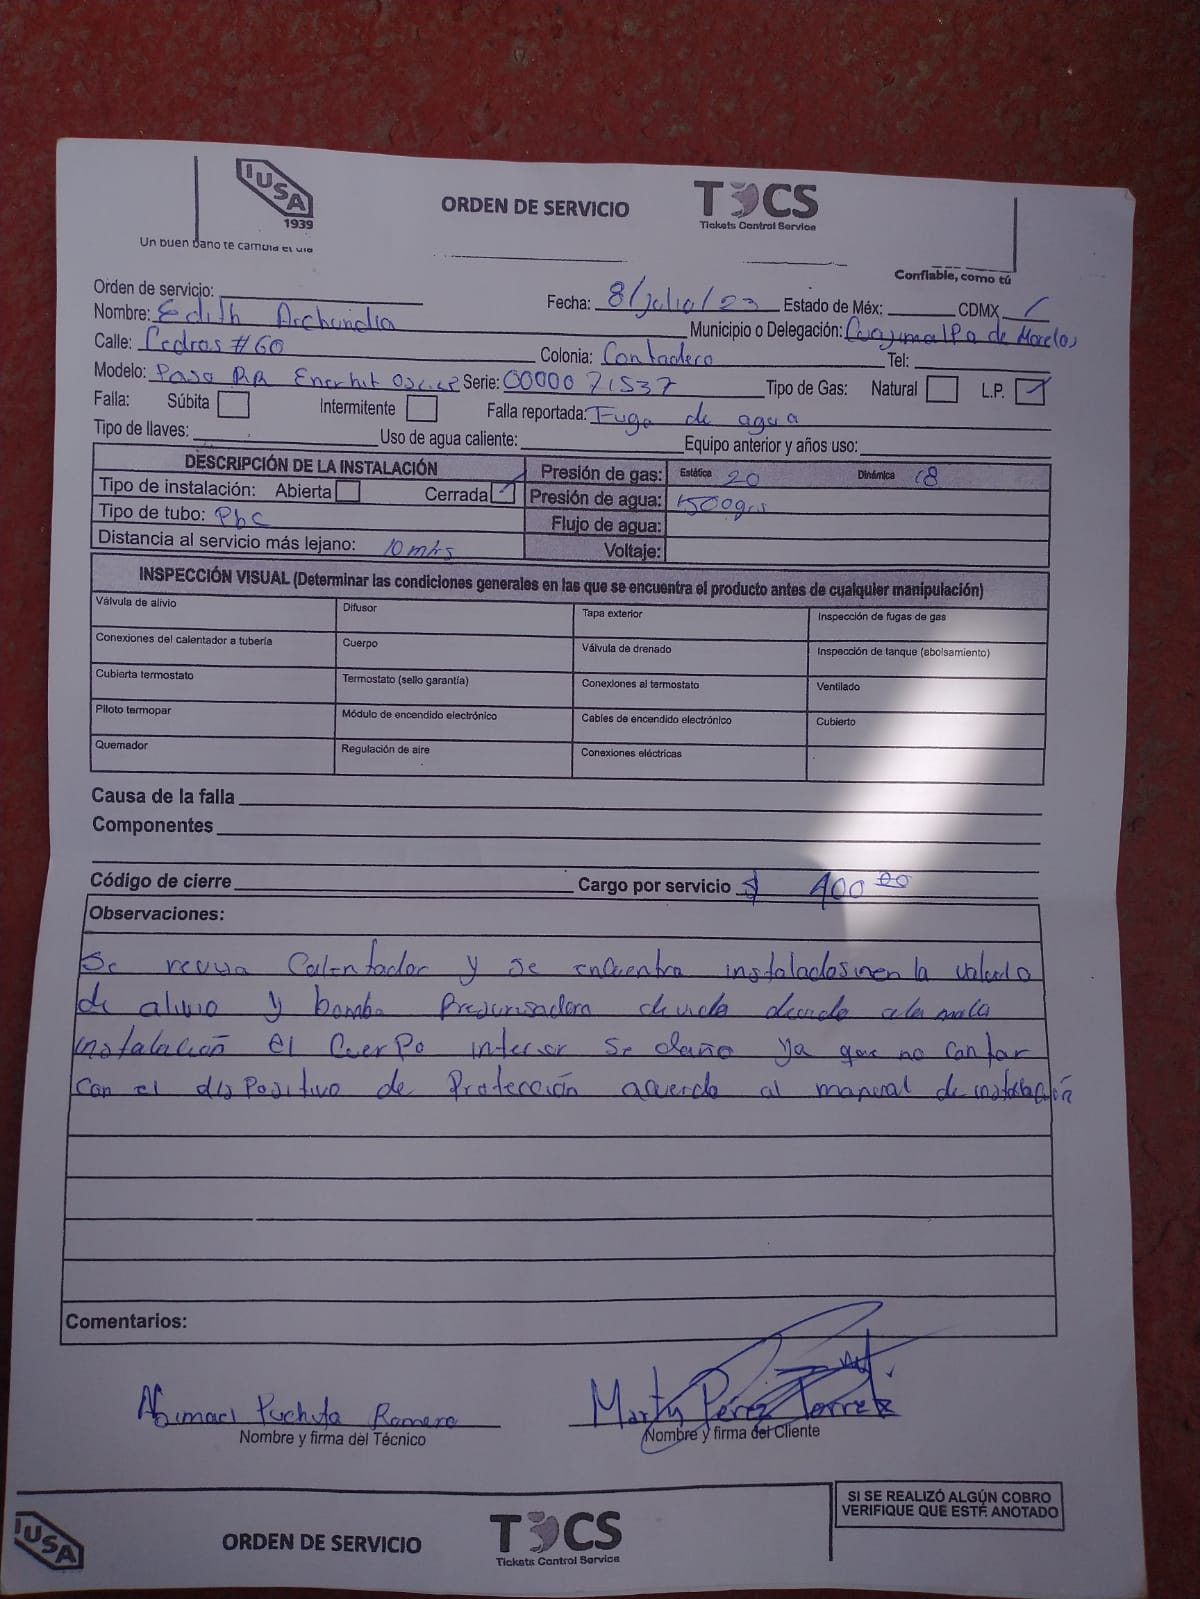 IUSA
1939
Un buen baño te cambia el día
ORDEN DE SERVICIO
TOCS
Tickets Control Service
Confiable, como tú
Orden de servicio:
Fecha: 8/Julio/23 Estado de Méx: CDMX
Nombre: Edith Archundia
Municipio o Delegación: Cuajimalpa de Morelos
Calle: Cedros #60
Colonia: Contadero Tel:
Modelo: Paso RR Enerhit Serie: 0000071537 Tipo de Gas: Natural L.P.
Falla: Súbita Intermitente Falla reportada: Fuga de agua
Tipo de llaves: Uso de agua caliente: Equipo anterior y años uso:
DESCRIPCIÓN DE LA INSTALACIÓN
Presión de gas: Estática 20 Dinámica 18
Tipo de instalación: Abierta Cerrada
Presión de agua: 1500grs
Tipo de tubo: PbC
Flujo de agua:
Distancia al servicio más lejano: 10 mtrs
Voltaje:
INSPECCIÓN VISUAL (Determinar las condiciones generales en las que se encuentra el producto antes de cualquier manipulación)
Válvula de alivio Difusor Tapa exterior Inspección de fugas de gas
Conexiones del calentador a tubería Cuerpo Válvula de drenado Inspección de tanque (abolsamiento)
Cubierta termostato Termostato (sello garantía) Conexiones al termostato Ventilado
Piloto termopar Módulo de encendido electrónico Cables de encendido electrónico Cubierto
Quemador Regulación de aire Conexiones eléctricas
Causa de la falla
Componentes
Código de cierre Cargo por servicio $ 400 00
Observaciones:
Se revisa Calentador y se encuentra instalado sin en la valvula
de alivio y bomba Presurisadora devido a la mala
instalación el Cuerpo interior se daño ya que no contar
con el dispositivo de Protección acuerdo al manual de instalación
Comentarios:
Abimael Puchuta Romero
Nombre y firma del Técnico
Martín Pérez Torrez
Nombre y firma del Cliente
SI SE REALIZÓ ALGÚN COBRO
VERIFIQUE QUE ESTÉ ANOTADO
IUSA
ORDEN DE SERVICIO
TOCS
Tickets Control Service